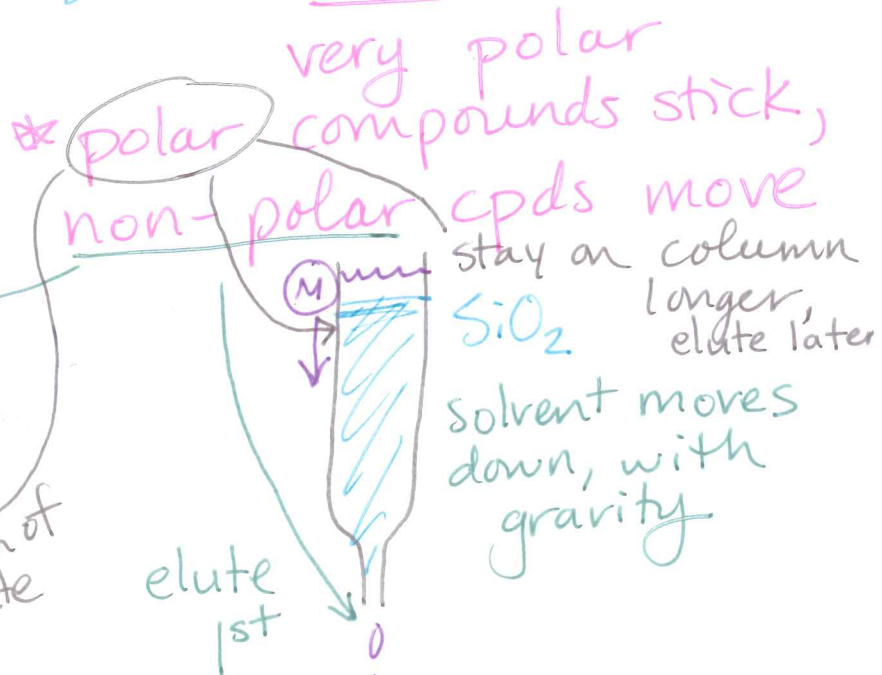 very polar
* polar compounds stick,
non-polar cpds move
stay on column
longer,
elute later
M
SiO2
solvent moves
down, with
gravity
of
elute
1st